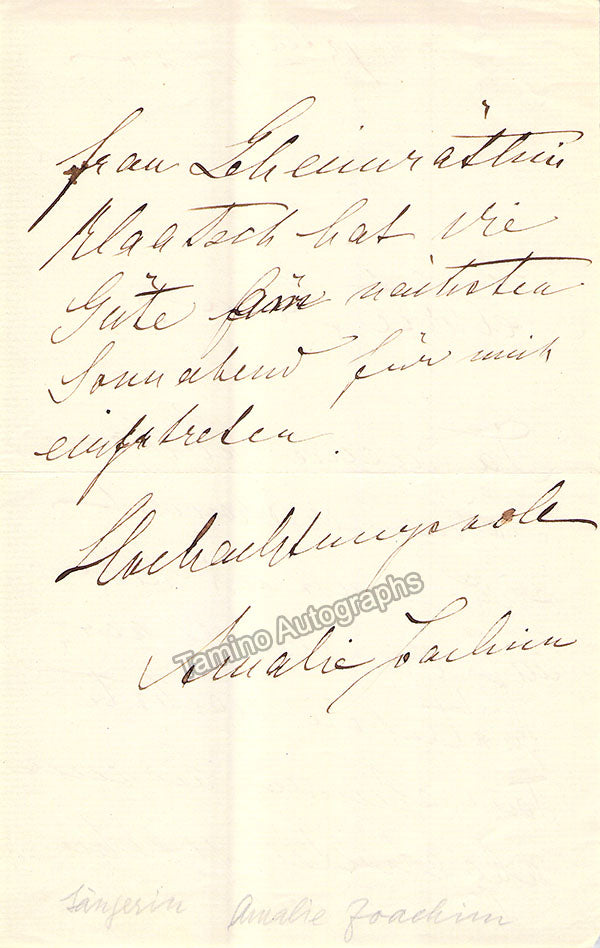 Frau Geheimräthin
Klaatsch hat die
Güte für nächsten
Sonnabend für mich
einzutreten.
Hochachtungsvoll
Amalie Joachim
Tamino Autographs
Sängerin Amalie Joachim